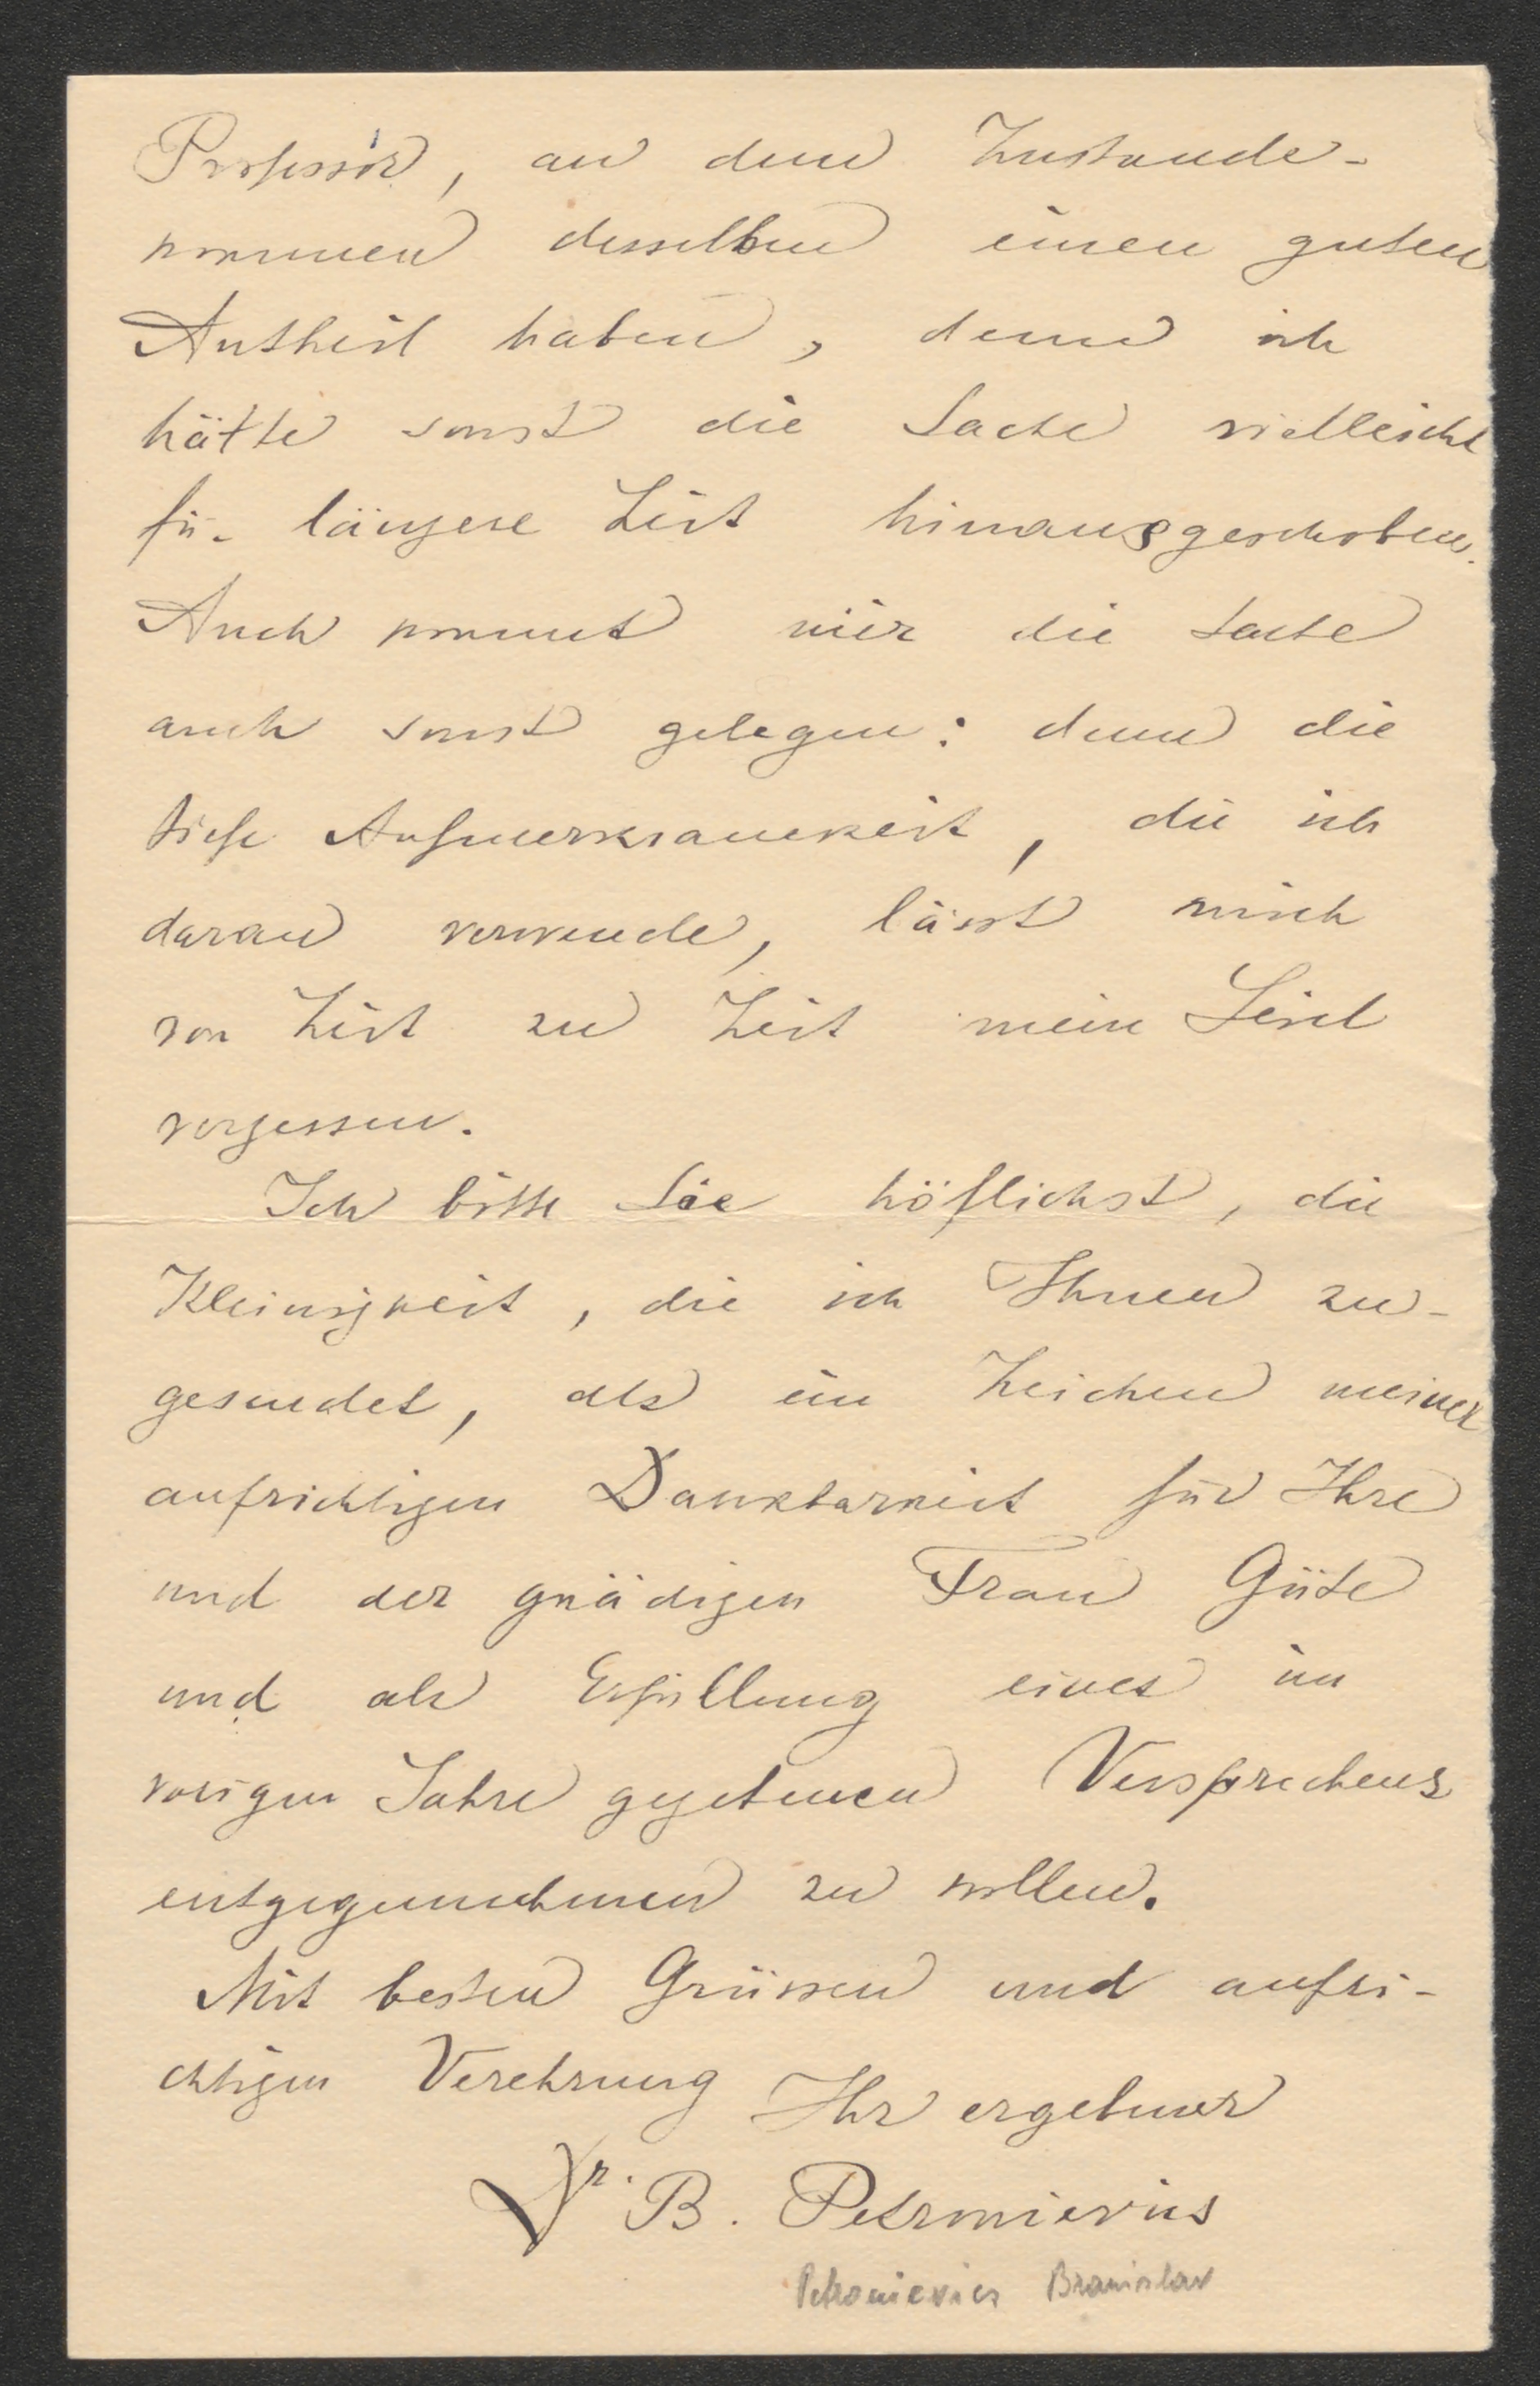 Professor, an dem Zustande-
kommen desselben einen guten
Antheil haben, denn ich
hätte sonst die Sache vielleicht
für längere Zeit hinausgeschoben.
Auch kommt mir die Sache
auch sonst gelegen: denn die
tiefe Aufmerksamkeit, die ich
daran verwende, lässt mich
von Zeit zu Zeit mein Leid
vergessen.
Ich bitte Sie höflichst, die
Kleinigkeit, die ich Ihnen zu-
gesendet, als ein Zeichen meiner
aufrichtigen Dankbarkeit für Ihre
und der gnädigen Frau Güte
und als Erfüllung eines im
vorigen Jahre gegebenen Versprechens
entgegennehmen zu wollen.
Mit besten Grüssen und aufri-
chtigen Verehrung Ihr ergebener
Dr. B. Petronievics
Petronievics Branislav